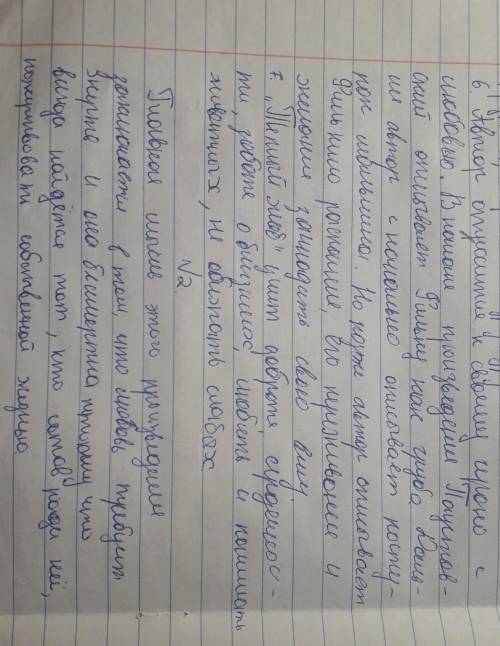 6. Автор относится к своему герою с
любовью. В начале произведения Паустов-
ский описывает Фильку как грубо
ие автор с начально описывает посту-
пок мальчика. Но позже автор описывает
Филькино раскаяние, его переживание и
желание загладить свою вину
7. "Тёплый хлеб" учит доброте, сердечнос-
ти, заботе о ближнего, любить и понимать
животных, не обижать слабых
№2
Главная мысль этого произведения
заключается в том, что любовь требует
жертв и она бессмертна, потому что
всегда найдётся тот, кто готов ради неё,
пожертвовать собственной жизнью